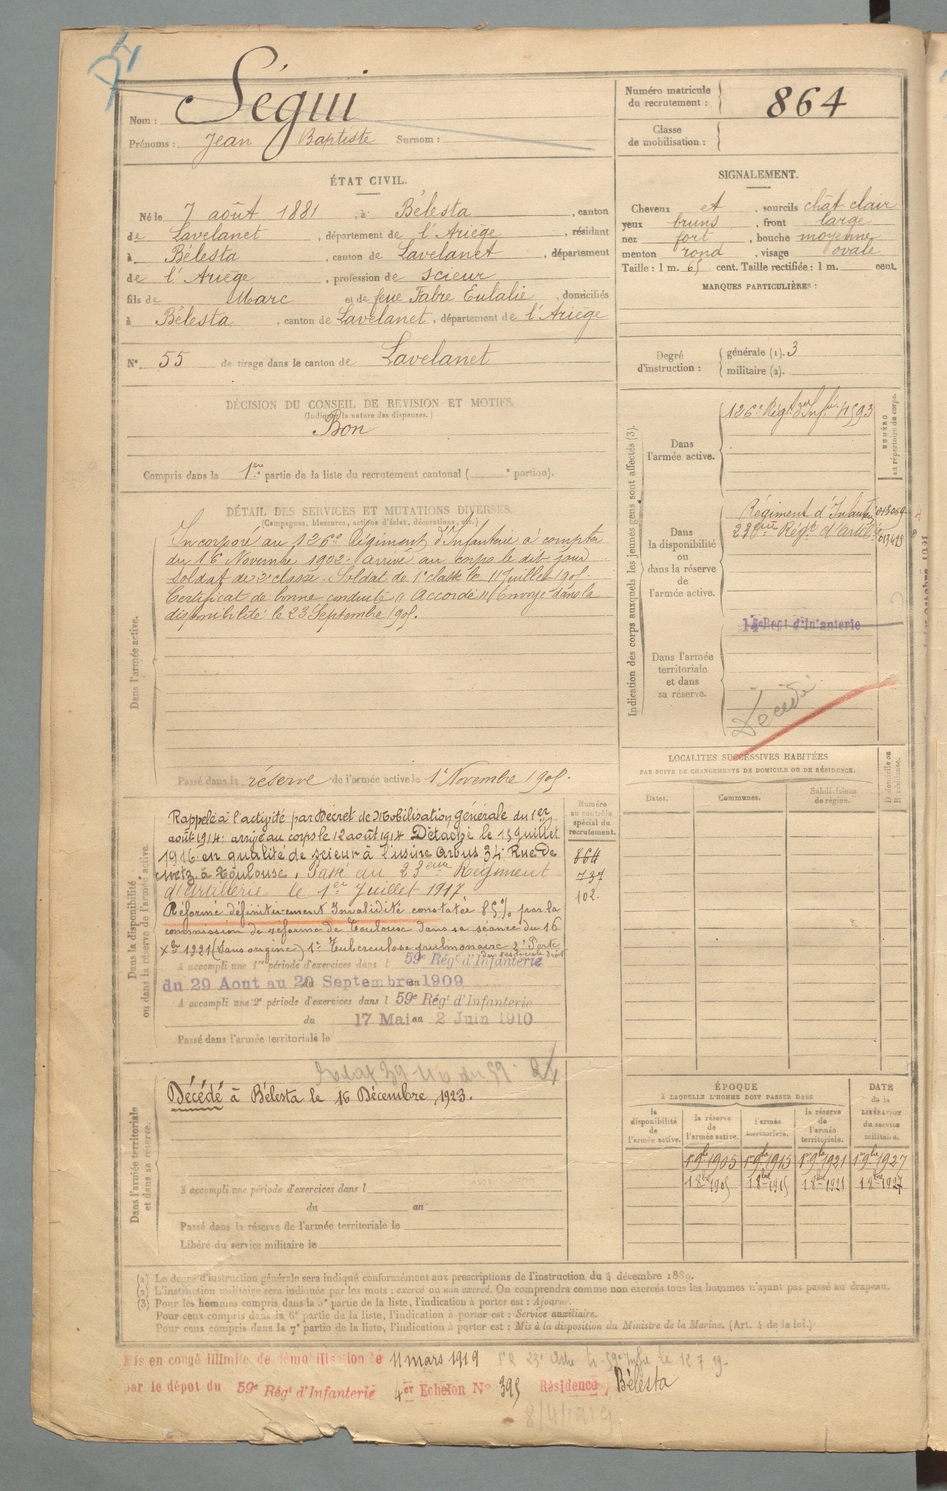 Nom : Ségui
Prénoms : Jean Baptiste Surnom :
Numéro matricule du recrutement : 864
Classe de mobilisation :
ÉTAT CIVIL.
Né le 7 août 1881, à Bélesta, canton
de Lavelanet, département de l'Ariège, résidant
à Bélesta, canton de Lavelanet, département
de l'Ariège, profession de scieur
fils de Marc et de feue Fabre Eulalie, domiciliés
à Bélesta, canton de Lavelanet, département de l'Ariège
N° 55 de tirage dans le canton de Lavelanet
SIGNALEMENT.
Cheveux et, sourcils chât clair
yeux bruns, front large
nez fort, bouche moyenne
menton rond, visage ovale
Taille : 1 m. 65 cent. Taille rectifiée : 1 m. cent.
MARQUES PARTICULIÈRES :
Degré d'instruction : générale (1). 3
militaire (2).
DÉCISION DU CONSEIL DE REVISION ET MOTIFS.
(Indiquer la nature des dispenses.)
Bon
Compris dans la 1ère partie de la liste du recrutement cantonal ( e portion).
DÉTAIL DES SERVICES ET MUTATIONS DIVERSES.
(Campagnes, blessures, actions d'éclat, décorations, etc.)
Dans l'armée active.
Incorporé au 126e Régiment d'Infanterie à compter
du 16 Novembre 1902. Arrivé au corps le dit jour
Soldat de 2e classe. Soldat de 1e classe le 11 Juillet 1905.
Certificat de bonne conduite "Accordé" Envoyé dans la
disponibilité le 23 Septembre 1905.
Passé dans la réserve de l'armée active le 1er Novembre 1905.
Indication des corps auxquels les jeunes gens sont affectés (3).
NUMÉRO au répertoire du corps.
Dans l'armée active.
126e Régt d'Infie 4593
Dans la disponibilité ou dans la réserve de l'armée active.
Régiment d'Infanterie
23ème Régt d'Artie
Dans l'armée territoriale et dans sa réserve.
14e Regt d'Infanterie
Décédé
LOCALITÉS SUCCESSIVES HABITÉES
PAR SUITE DE CHANGEMENTS DE DOMICILE OU DE RÉSIDENCE.
Dates. Communes. Subdivisions de région. D domicile ou R résidence.
Dans la disponibilité ou dans la réserve de l'armée active.
Numéro au contrôle spécial du recrutement.
864
737
102
Rappelé à l'activité par Décret de Mobilisation générale du 1er
août 1914. arrivé au corps le 12 août 1914 Détaché le 15 juillet
1916 en qualité de scieur à l'usine Arbus 34 Rue de
Metz à Toulouse. Passé au 23ème Régiment
d'Artillerie le 1er Juillet 1917
Réformé définitivement Invalidité constatée 85% par la
commission de réforme de Toulouse dans sa séance du 16
Xbre 1921 (sans origine) 1° Tuberculose pulmonaire 2° Perte
A accompli une 1re période d'exercices dans l 59e Régt d'Infanterie
du 29 Aout au 20 Septembre 1909
A accompli une 2e période d'exercices dans l 59e Régt d'Infanterie
du 17 Mai au 2 Juin 1910
Passé dans l'armée territoriale le
Dans l'armée territoriale et dans sa réserve.
Décédé à Bélesta le 16 Décembre 1923.
A accompli une période d'exercices dans l
du au
Passé dans la réserve de l'armée territoriale le
Libéré du service militaire le
ÉPOQUE
À LAQUELLE L'HOMME DOIT PASSER DANS
la disponibilité de l'armée active. la réserve de l'armée active. l'armée territoriale. la réserve de l'armée territoriale.
DATE de la LIBÉRATION du service militaire.
1er 9bre 1905 1er 9bre 1915 1er 9bre 1921 1er 9bre 1927
1 8bre 1905 1 8bre 1915 1 8bre 1921 1 8bre 1927
(1) Le degré d'instruction générale sera indiqué conformément aux prescriptions de l'instruction du 4 décembre 1889.
(2) L'instruction militaire sera indiquée par les mots : exercé ou non exercé. On comprendra comme non exercés tous les hommes n'ayant pas passé au drapeau.
(3) Pour les hommes compris dans la 5e partie de la liste, l'indication à porter est : Ajourné.
Pour ceux compris dans la 6e partie de la liste, l'indication à porter est : Service auxiliaire.
Pour ceux compris dans la 7e partie de la liste, l'indication à porter est : Mis à la disposition du Ministre de la Marine. (Art. 4 de la loi.)
Mis en congé illimité de démobilisation le 11 mars 1919
par le dépot du 59e Régt d'Infanterie 4er Echelon N° 395 Résidence, Bélesta
8/4/1919